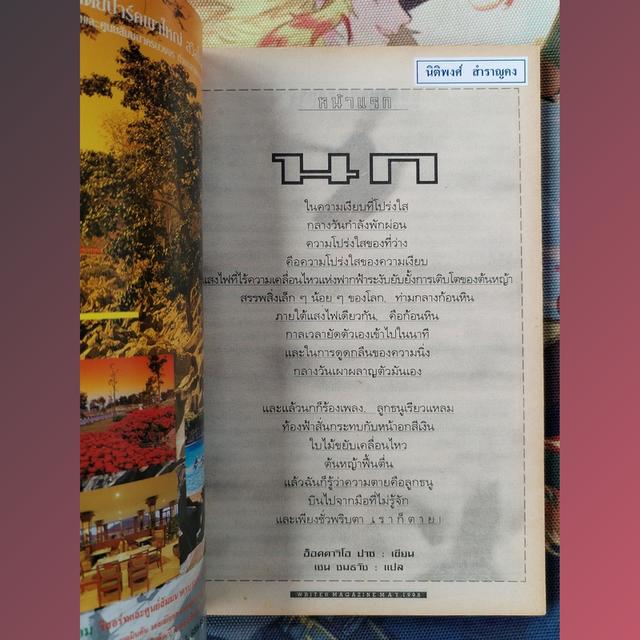 นิติพงศ์ สำราญคง
หน้าแรก
นก
ในความเงียบที่โปร่งใส
กลางวันกำลังพักผ่อน
ความโปร่งใสของที่ว่าง
คือความโปร่งใสของความเงียบ
แสงไฟที่ไร้ความเคลื่อนไหวแห่งฟากฟ้าระงับยับยั้งการเติบโตของต้นหญ้า
สรรพสิ่งเล็ก ๆ น้อย ๆ ของโลก, ท่ามกลางก้อนหิน
ภายใต้แสงไฟเดียวกัน, คือก้อนหิน
กาลเวลายัดตัวเองเข้าไปในนาที
และในการดูดกลืนของความนิ่ง
กลางวันเผาผลาญตัวมันเอง
และแล้วนกก็ร้องเพลง, ลูกธนูเรียวแหลม
ท้องฟ้าสั่นกระทบกับหน้าอกสีเงิน
ใบไม้ขยับเคลื่อนไหว
ต้นหญ้าฟื้นตื่น
แล้วฉันก็รู้ว่าความตายคือลูกธนู
บินไปจากมือที่ไม่รู้จัก
และเพียงชั่วพริบตา เราก็ตาย!
อ็อคตาวิโอ ปาซ : เขียน
เชน ชมธวัช : แปล
WRITER MAGAZINE MAY 1998